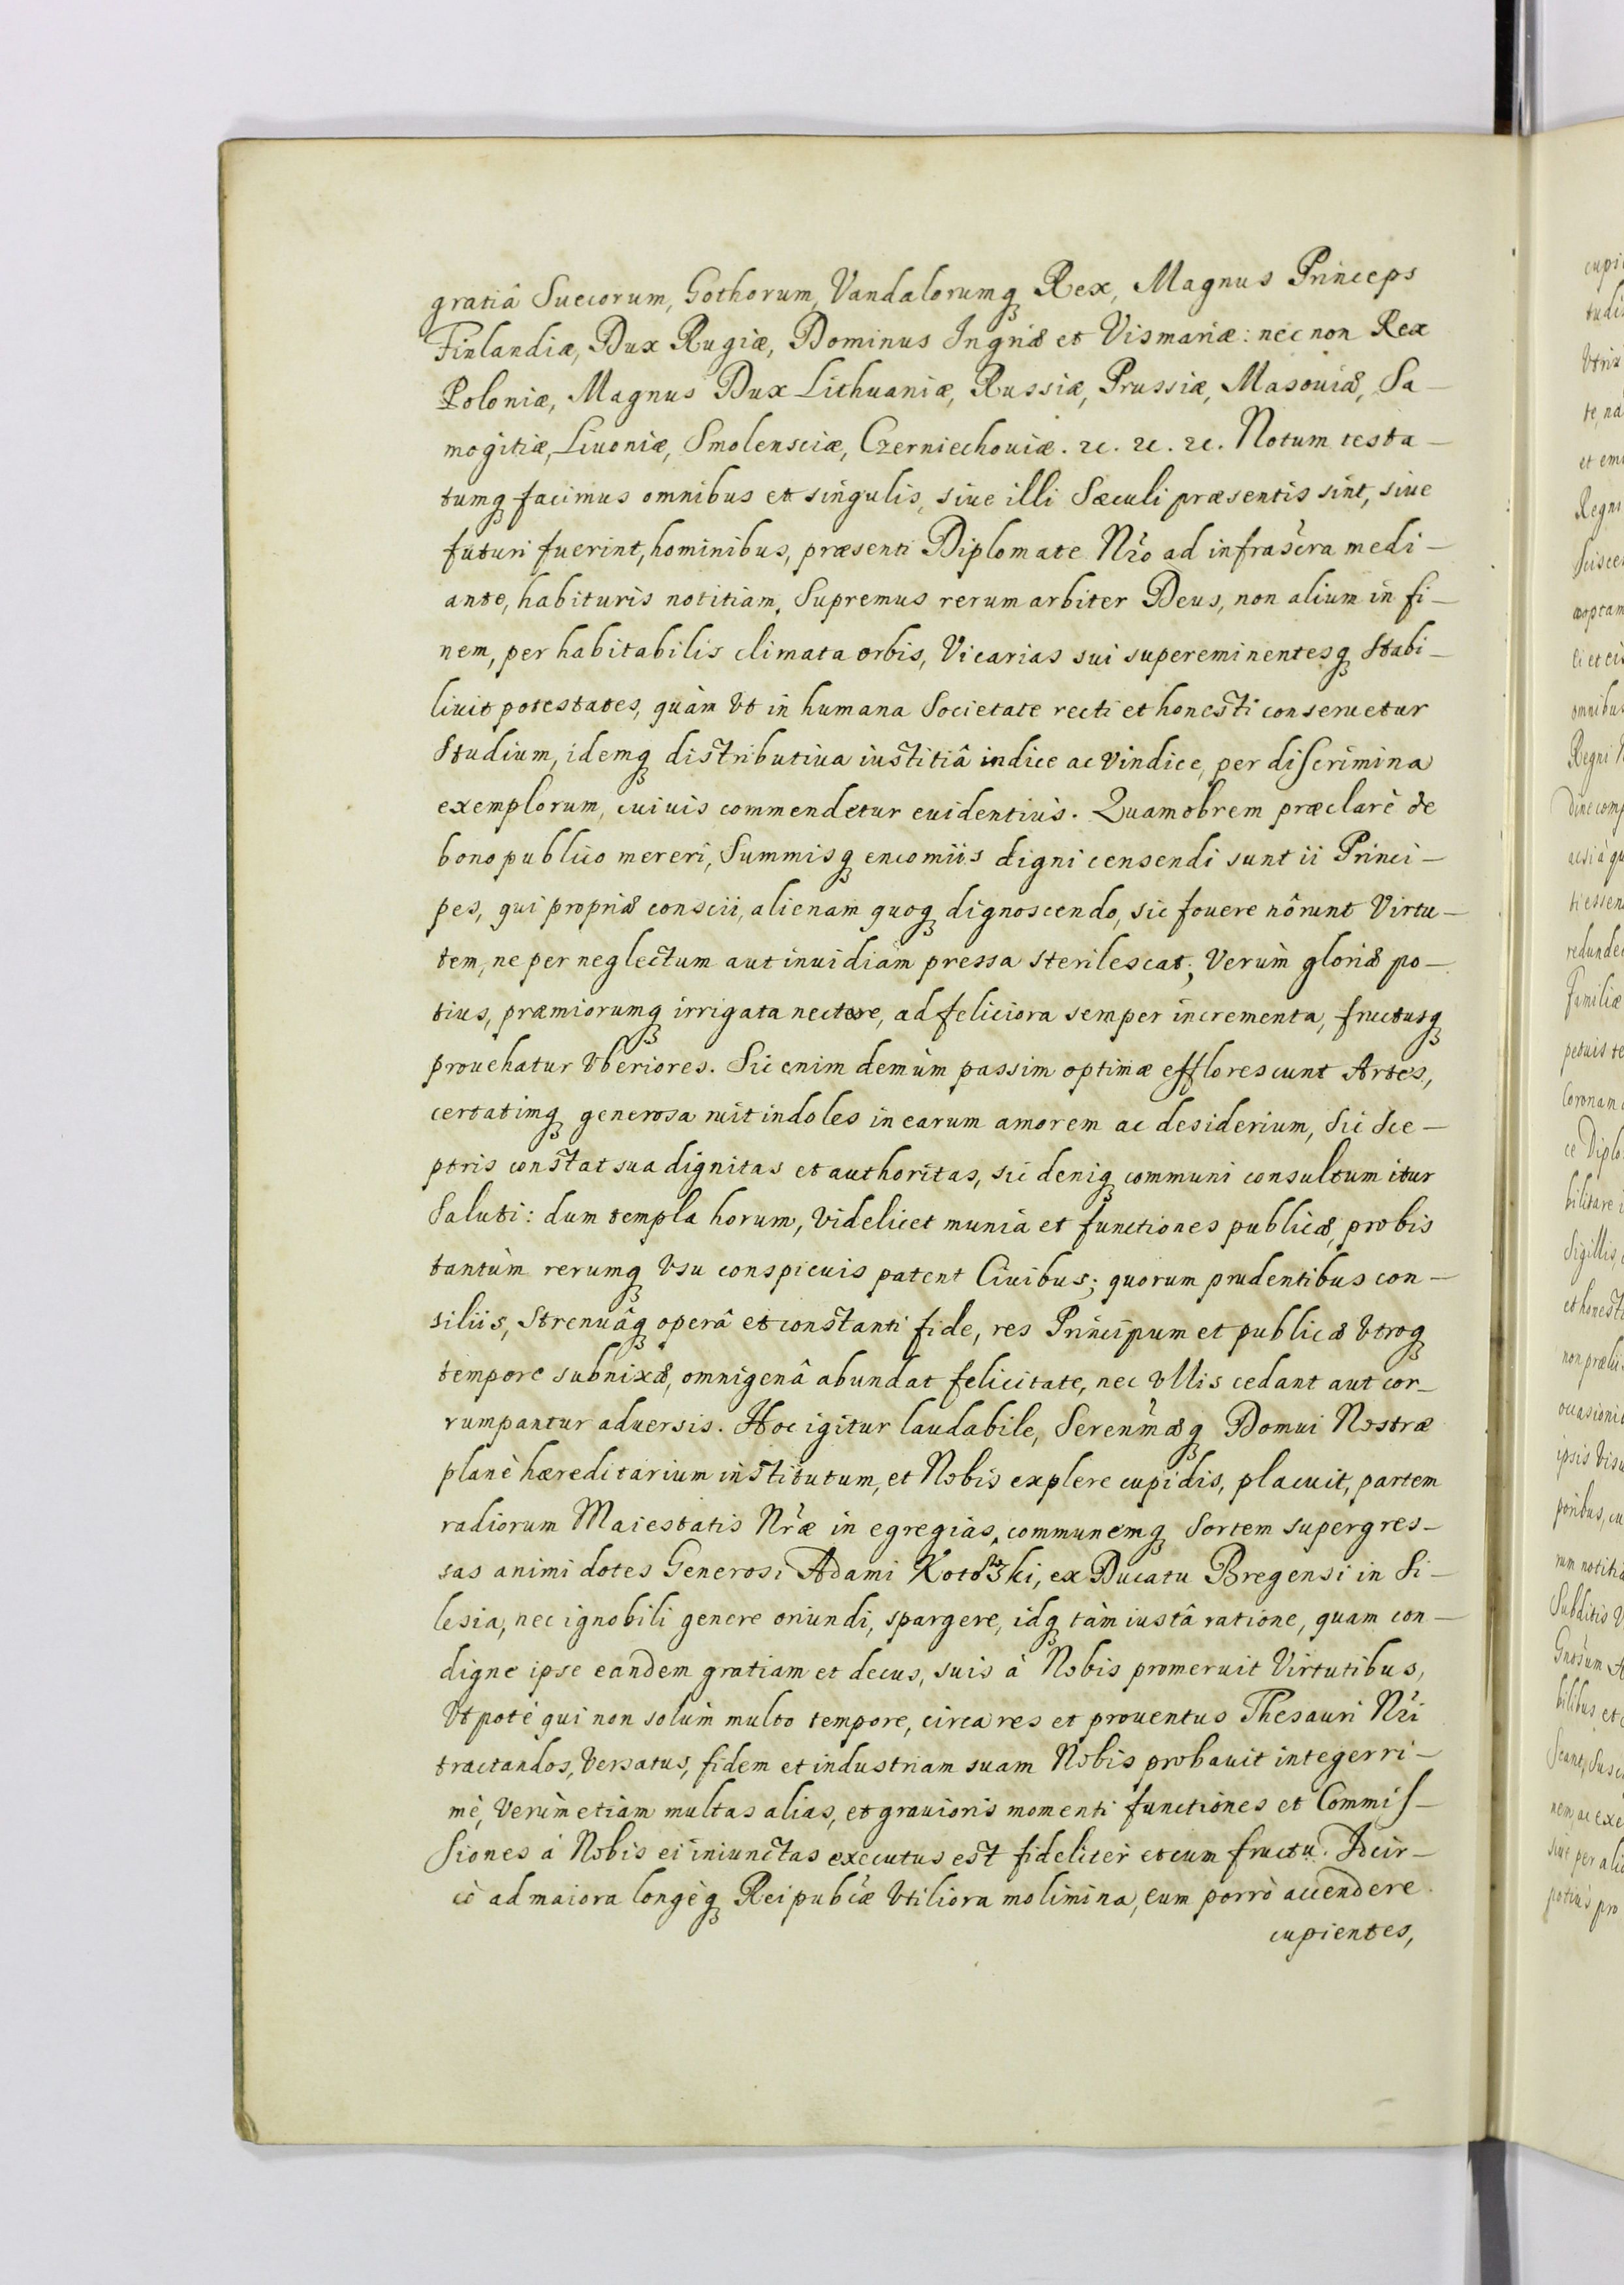 gratiâ Suecorum, Gothorum, Vandalorumq Rex, Magnus Princeps
Finlandiæ, Dux Rugiæ, Dominus Ingriæ et Vismariæ: nec non Rex
Poloniæ, Magnus Dux Lithuaniæ, Russiæ, Prussiæ, Masouiæ, Sa–
mogitiæ, Liuoniæ, Smolensciæ, Czerniechouiæ. &c. &c. &c. Notum testa–
tumq facimus omnibus et singulis, siue illi Sæculi præsentis sint, siue
futuri fuerint, hominibus, præsenti Diplomate Nr̃o ad infrascr̃a medi–
ante, habituris notitiam. Supremus rerum arbiter Deus, non alium in fi–
nem, per habitabilis climata orbis, Vicarias sui supereminentesq stabi–
liuit potestates, quàm Vt in humana Societate recti et honesti conseruetur
Studium, idemq distributiua iustitiâ indice ac vindice, per discrimina
exemplorum, cuiuis commendetur euidentiùs. Quamobrem præclarè de
bono publico mereri, Summisq encomiis digni censendi sunt ii Princi–
pes, qui propriæ conscii, alienam quoq dignoscendo, sic fouere nôrunt Virtu–
tem, ne per neglectum aut inuidiam pressa sterilescat; Verùm gloriæ po–
tius, præmiorumq irrigata nectare, ad feliciora semper incrementa, fructusq
prouehatur Vberiores. Sic enim demùm passim optimæ efflorescunt Artes,
certatimq generosa ruit indoles in earum amorem ac desiderium, Sic Sce–
ptris constat sua dignitas et authoritas, sic deniq communi consultum itur
Saluti: dum templa horum, Videlicet munia et functiones publicæ, probis
tantùm rerumq Vsu conspicuis patent Ciuibus; quorum prudentibus con–
siliis, Strenuâq operâ et constanti fide, res Principum et publicæ Vtroq
tempore subnixæ, omnigenâ abundat felicitate, nec Vllis cedant aut cor–
rumpantur aduersis. Hoc igitur laudabile, Seren̄mæq Domui Nostræ
planè hæreditarium institutum, et Nobis explere cupidis, placuit, partem
radiorum Maiestatis Nr̃æ in egregias, communemq Sortem supergres–
sas animi dotes Generosi Adami ki, ex Ducatu Bregensi in Si–
lesia, nec ignobili genere oriundi, spargere, idq tàm iustâ ratione, quam con–
digne ipse eandem gratiam et decus, suis à Nobis promeruit Virtutibus,
Vtpotè qui non solùm multo tempore, circa res et prouentus Thesauri Nr̃i
tractandos, Versatus, fidem et industriam suam Nobis probauit integerri–
mè, Verùm etiam multas alias, et grauioris momenti functiones et Commis–
siones à Nobis ei iniunctas executus est fideliter et cum fructu. Idcir–
cò ad maiora longèq Reipub̃cæ Vtiliora molimina, eum porrò accendere
cupientes,